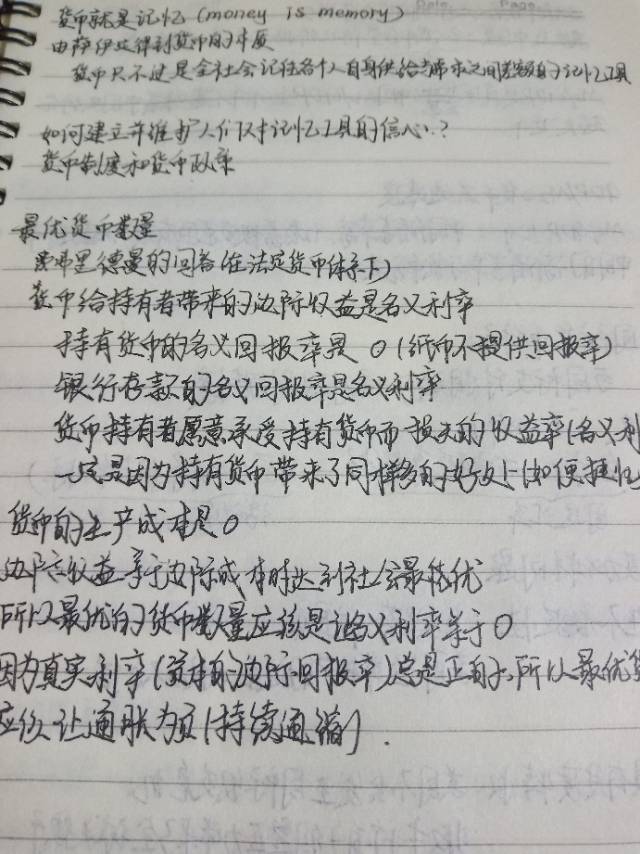 货币就是记忆 (money is memory)
由萨伊处得到货币的本质
货币只不过是全社会记住各个人自身供给与需求之间差额的记忆工具
如何建立并维护人们对记忆工具的信心?
货币制度和货币政策
最优货币数量
弗里德曼的回答(在法定货币体系下)
货币给持有者带来的边际收益是名义利率
持有货币的名义回报率是 0 (纸币不提供回报率)
银行存款的名义回报率是名义利率
货币持有者愿意承受持有货币而损失的收益率(名义利
一定是因为持有货币带来了同样多的好处(如便捷性
货币的生产成本是 0
边际收益等于边际成本时达到社会最优
所以最优的货币数量应该是让名义利率等于 0
因为真实利率(资本的边际回报率)总是正的,所以最优货
应该让通胀为负(持续通缩).